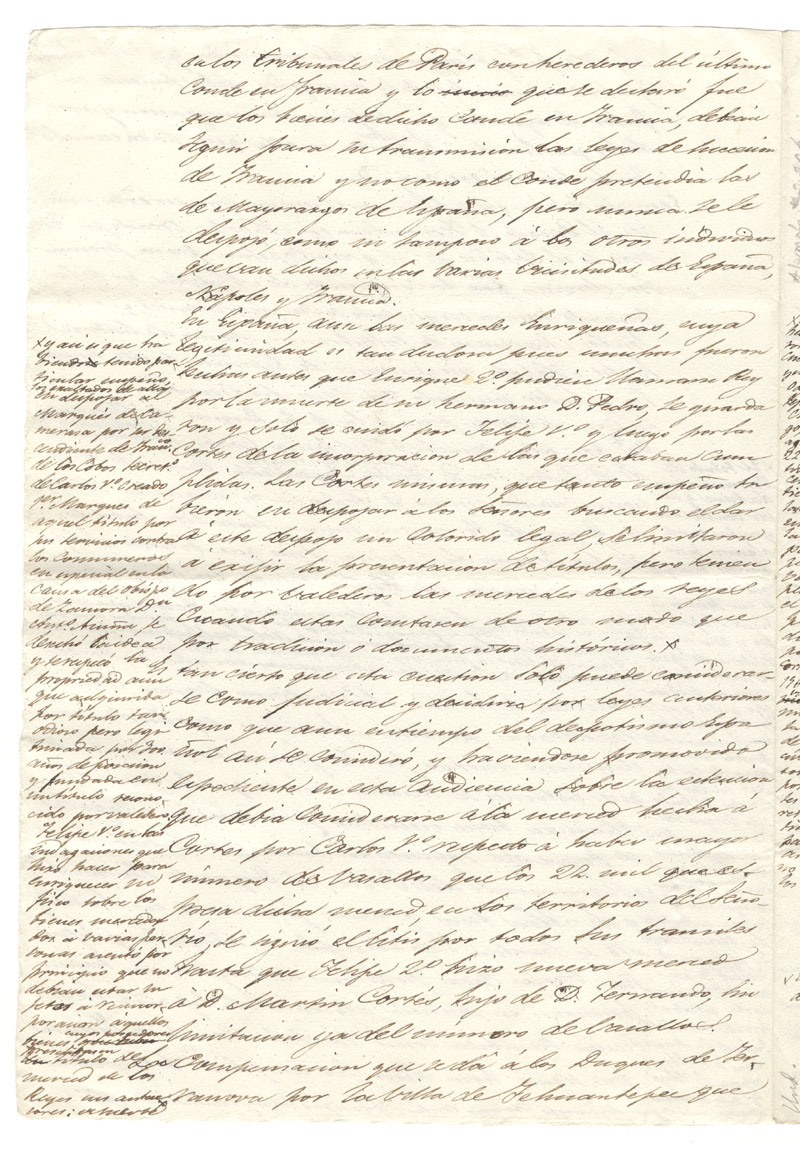 en los tribunales de París con herederos del último
Conde en Francia y lo que se declaró fue
que los bienes de dicho Conde en Francia, debían
seguir para su transmisión las leyes de sucesion
de Francia y no como el Conde pretendia las
de Mayorazgos de España, pero nunca se le
despojó, como ni tampoco á los otros individuos
que van dichos en las varias vicisitudes de España,
Nápoles y Francia.
En España, aun las mercedes Enriqueñas, cuya
legitimidad es tan dudosa pues muchas fueron
hechas antes que Enrique 2º pudiese llamarse Rey
por la muerte de su hermano D. Pedro, se guarda
ron y solo se cuidó por Felipe Vº y luego por las
Cortes de la incorporacion de las que estaban cum
plidas. Las Cortes mismas, que tanto empeño tu
bieron en despojar á los Señores buscando el dar
á este despojo un colorido legal, se limitaron
á exijir la presentacion de títulos, pero tenien
do por valederos las mercedes de los reyes
Cuando estas constasen de otro modo que
por tradicion ó documentos históricos. x
tan cierto que esta cuestion solo puede considerar-
se como judicial y decidirse por leyes anteriores
como que aun en tiempo del despotismo Espa
ñol así se consideró, y haciendose promovido
espediente en esta Audiencia sobre la estencion
que debia considerarse á la merced hecha á
Cortes por Carlos Vº respecto á haber mayor
número de vasallos que los 22 mil que es-
presa dicha merced en los territorios del Seño-
río, se siguió el litis por todos sus tramites
hasta que Felipe 2º hizo nueva merced
á D. Martin Cortés, hijo de D. Fernando, sin
limitacion ya del número de vasallos.
La Compensacion que se dá á los Duques de Ter-
ranova por la Villa de Tehuantepec que
x y así es que ha
biendo tenido par
ticular empeño
los exaltados de
en despojar al
Marqués de Ca
merasa por ser des
cendiente de Franco
de los Cobos secreto
de Carlos Vº Creado
1er Marques de
aquel título por
sus servicios contra
los Comuneros
en especial en la
causa del Obispo
de Zamora Dn
Anto Acuña se
desechó la idea
y se respetó la
propiedad aun
que adquirida
por título tan
odioso pero legi
timada por 300
años de posesion
y fundada en
un título recono
cido por valedero
Felipe Vº en las
indagaciones que
hizo hacer para
enriquecer su
fisco sobre los
bienes merceda
dos á varias per
sonas asentó por
principio que no
debian estar su
jetos á reincor
poracion aquellos
bienes cuyos
presentasen
título de
merced de los
Reyes sus antece
sores: